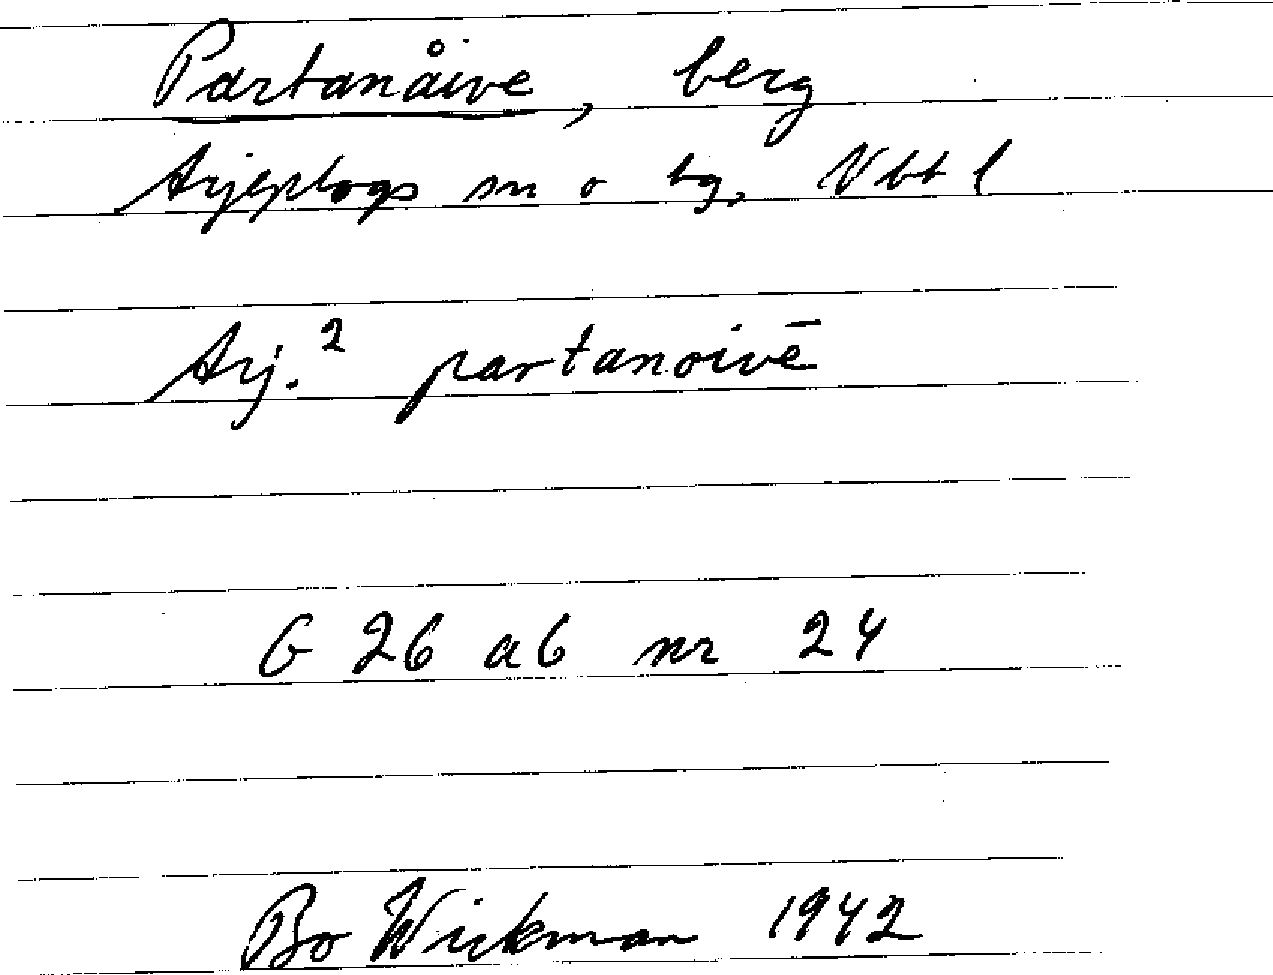 Partanåive, berg
Arjeplogs sn o tg, Vbt l
Arj.² partanoivē
G 26 a6 nr 24
Bo Wickman 1942